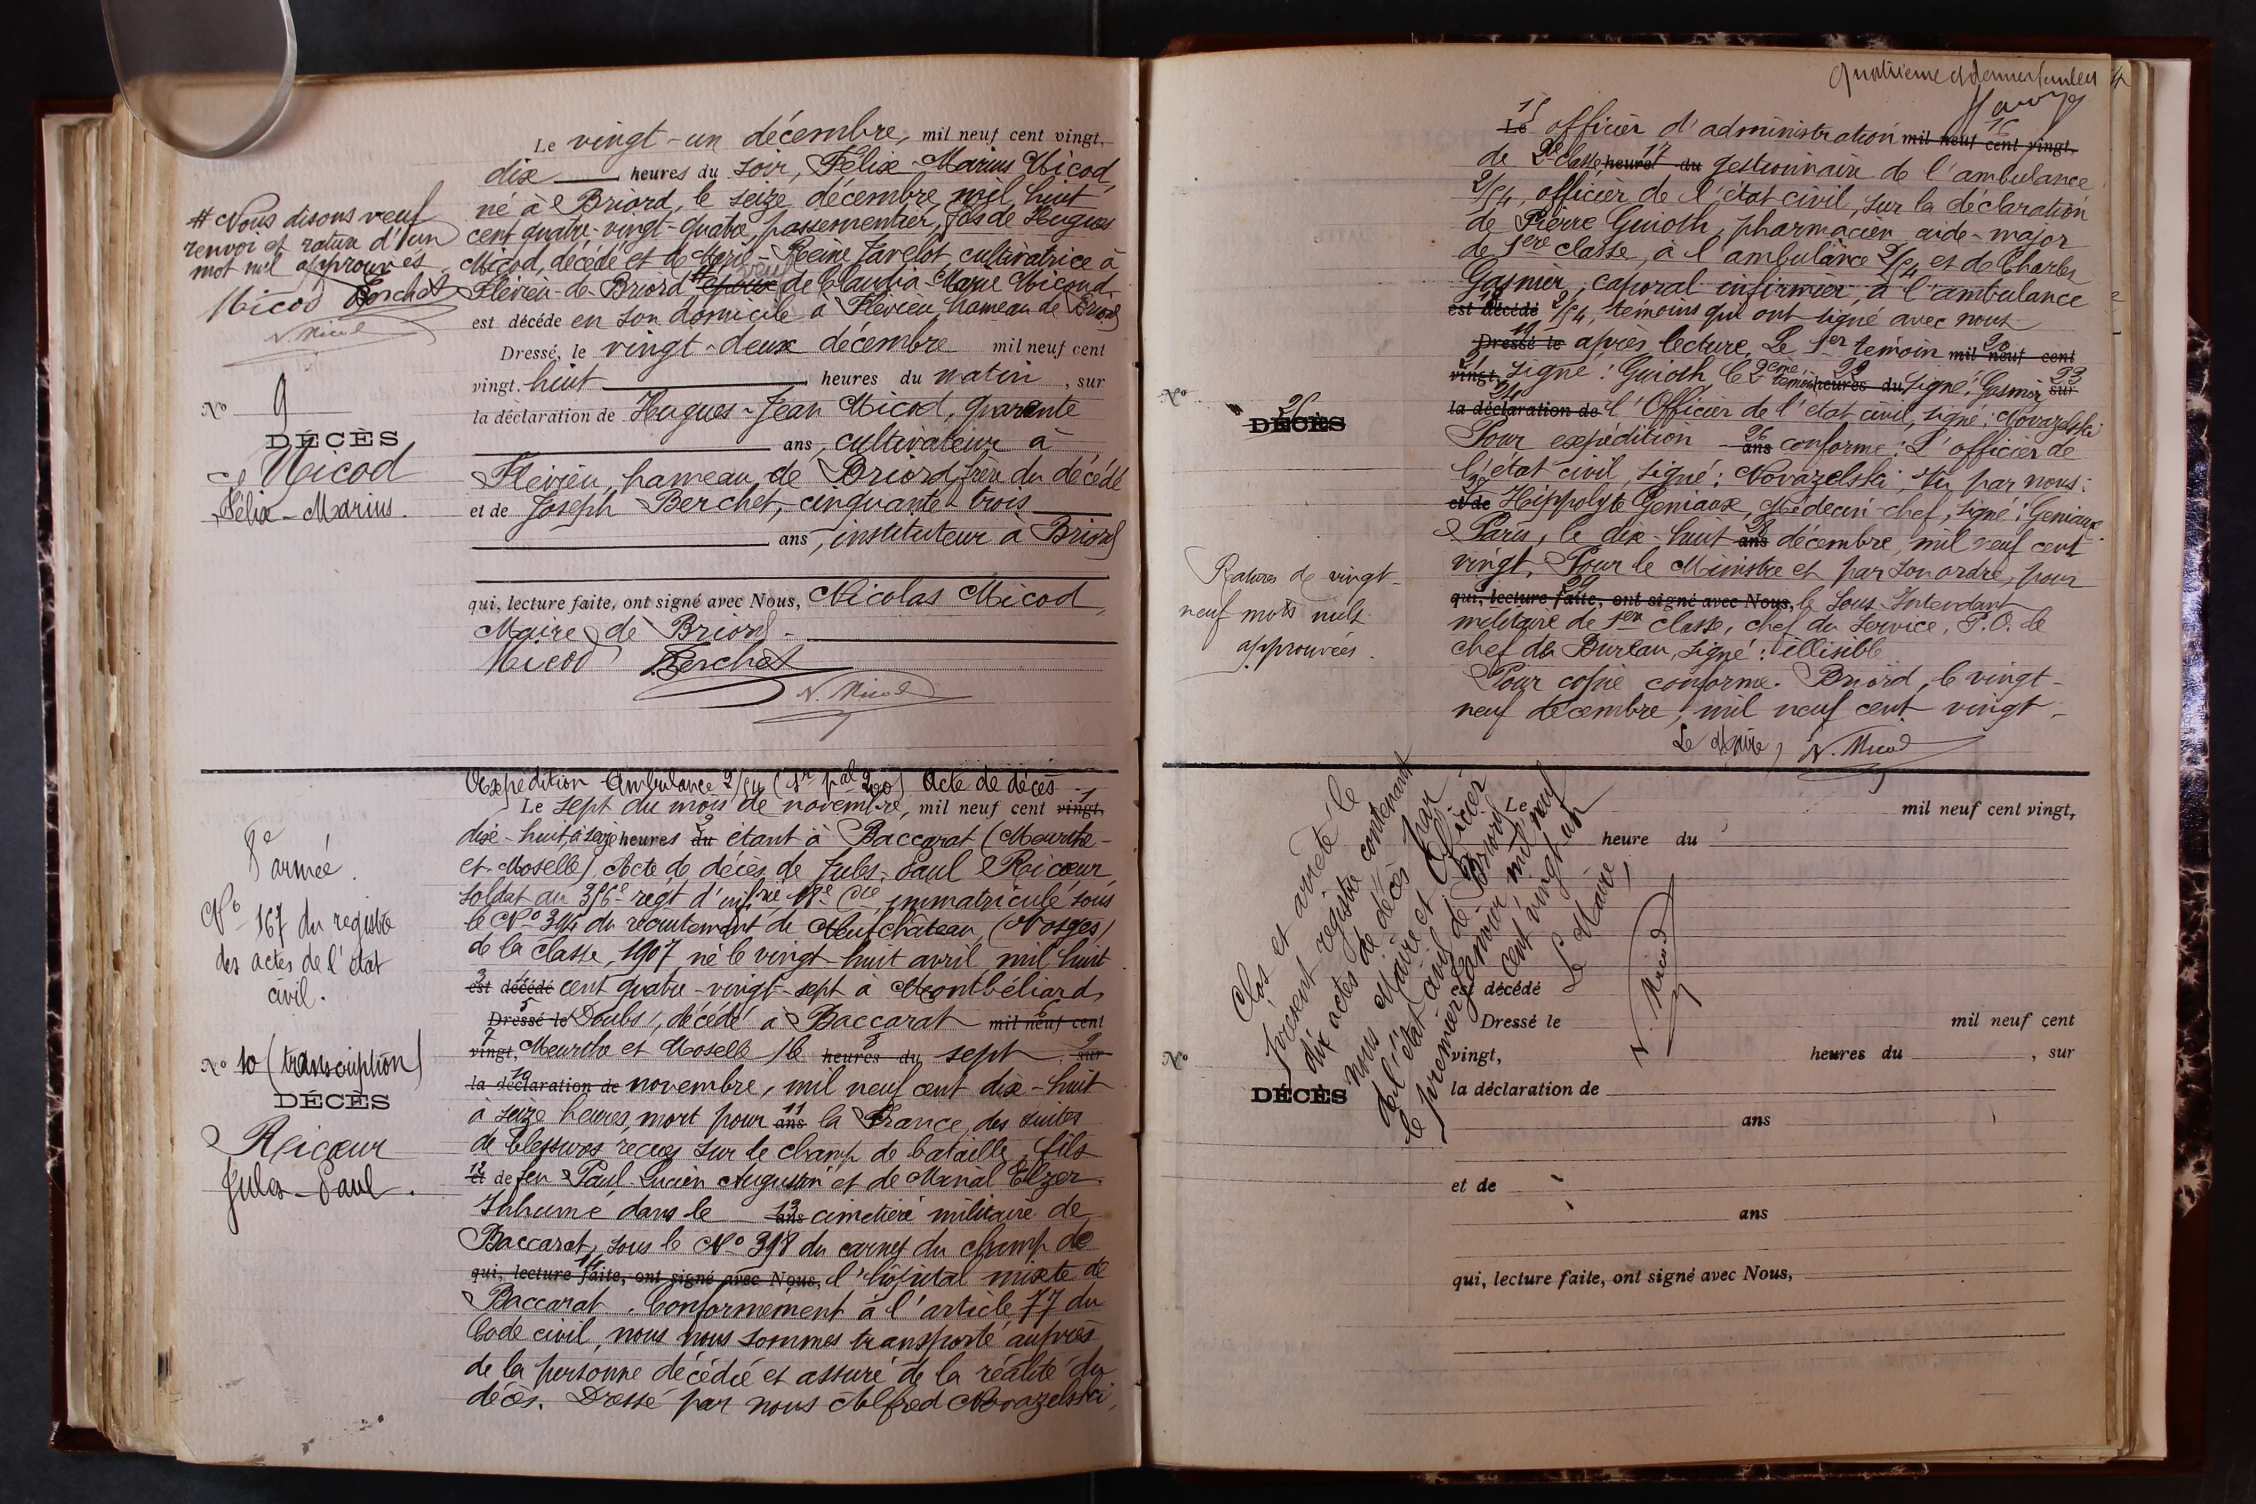 Le vingt-un décembre, mil neuf cent vingt,
dix heures du soir, Félix-Marius Micod,
né à Briord, le seize décembre mil huit
cent quatre-vingt-quatre, passementier, fils de Hugues
Micod, décédé et de Marie-Reine Javelot, cultivatrice à
Flévieu-de-Briord # époux veuf de Claudia-Marie Micoud
est décédé en son domicile à Flévieu, hameau de Briord
Dressé, le vingt-deux décembre mil neuf cent
vingt, huit heures du matin, sur
la déclaration de Hugues-Jean Micod, quarante
ans, cultivateur à
Flévieu, hameau de Briord, frère du décédé
et de Joseph Berchet, cinquante-trois
ans, instituteur à Briord
qui, lecture faite, ont signé avec Nous, Nicolas Micod,
Maire de Briord.
Micod Berchet
N. Micod
# Nous disons veuf
renvoi et rature d'un
mot nul approuvés
Micod Berchet
N. Micod
No 9
DÉCÈS
Micod
Félix-Marius.
Expédition Ambulance 2/54 (Sr pal 200) Acte de décès
Le sept du mois de novembre, mil neuf cent vingt, 1
dix-huit, à seize heures du 2 étant à Baccarat (Meurthe-
et-Moselle) Acte de décès de Jules-Paul Ricœur,
soldat au 356e regt d'infrie 18e Cie, immatriculé sous
le No 394 du recrutement de Neufchâteau (Vosges)
de la classe, 1907 né le vingt-huit avril mil huit
3 est décédé cent quatre-vingt-sept à Montbéliard,
5 Dressé le Doubs, décédé à Baccarat mil neuf cent 6
7 vingt, Meurthe et Moselle, le heures du 8 sept sur 9
10 la déclaration de novembre, mil neuf cent dix-huit
à seize heures, mort pour ans 11 la France, des suites
de blessures reçues sur le champ de bataille, fils
12 et de feu Paul-Lucien Augustin et de Marial Elzer.
Inhumé dans le ans 13 cimetière militaire de
Baccarat, sous le No 398 du carnet du champ de
qui, lecture faite, ont signé avec Nous, 14 l'hôpital mixte de
Baccarat. Conformément à l'article 77 du
Code civil, nous nous sommes transporté auprès
de la personne décédée et assuré de la réalité du
décès. Dressé par nous Alfred Novazelski,
8e armée.
No 167 du registre
des actes de l'état
civil.
No 10 (transcription)
DÉCÈS
Ricœur
Jules-Paul.
Quatrième et dernier feuillet 4
15 Le officier d'administration mil neuf cent vingt, 16
de 2e classe, heures du 17 gestionnaire de l'ambulance
2/54, officier de l'état civil, sur la déclaration
de Pierre Guioth, pharmacien aide-major
de 1ère classe, à l'ambulance 2/54 et de Charles
Gasnier, caporal infirmier, à l'ambulance
18 est décédé 2/54, témoins qui ont signé avec nous
19 Dressé le après lecture. Le 1er témoin mil neuf cent 20
21 vingt, signé: Guioth le 2ème témoin heures du 22 signé: Gasnier sur 23
24 la déclaration de l'Officier de l'état civil, signé: Novazelski
Pour expédition ans 26 conforme: L'officier de
l'état civil, signé: Novazelski, Vu par nous:
27 et de Hippolyte Geniaux, Médecin chef, signé: Geniaux.
Paris, le dix-huit ans 28 décembre, mil neuf cent
vingt. Pour le Ministre et par son ordre, pour
qui, lecture faite, ont signé avec Nous, 29 le Sous-Intendant
militaire de 1ère classe, chef du service, P.O. le
chef de Bureau, signé: illisible
Pour copie conforme. Briord, le vingt-
neuf décembre, mil neuf cent vingt.
Le Maire, N. Micod
No
25
DÉCÈS
Ratures de vingt-
neuf mots nuls
approuvées.
Clos et arrêté le
présent registre contenant
dix actes de décès par
nous Maire et Officier
de l'état civil de Briord
le premier janvier mil neuf
cent vingt-un
Le Maire,
N. Micod
Le mil neuf cent vingt,
heure du
est décédé
Dressé le mil neuf cent
vingt, heures du , sur
No
DÉCÈS
la déclaration de
ans
et de
ans
qui, lecture faite, ont signé avec Nous,